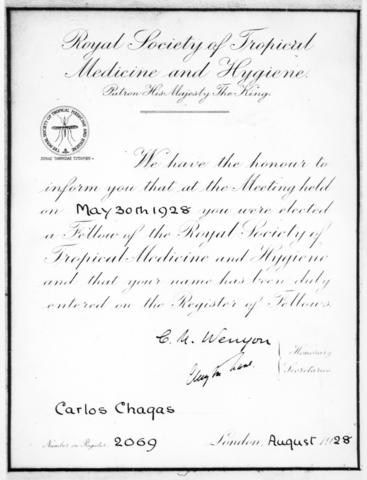 Royal Society of Tropical
Medicine and Hygiene.
Patron His Majesty The King.
THE ROYAL SOCIETY OF TROPICAL MEDICINE AND HYGIENE
We have the honour to
inform you that at the Meeting held
on May 30th 1928 you were elected
a Fellow of the Royal Society of
Tropical Medicine and Hygiene
and that your name has been duly
entered on the Register of Fellows.
C. M. Wenyon
Honorary
Secretaries
Carlos Chagas
Number on Register, 2069
London, August 1928